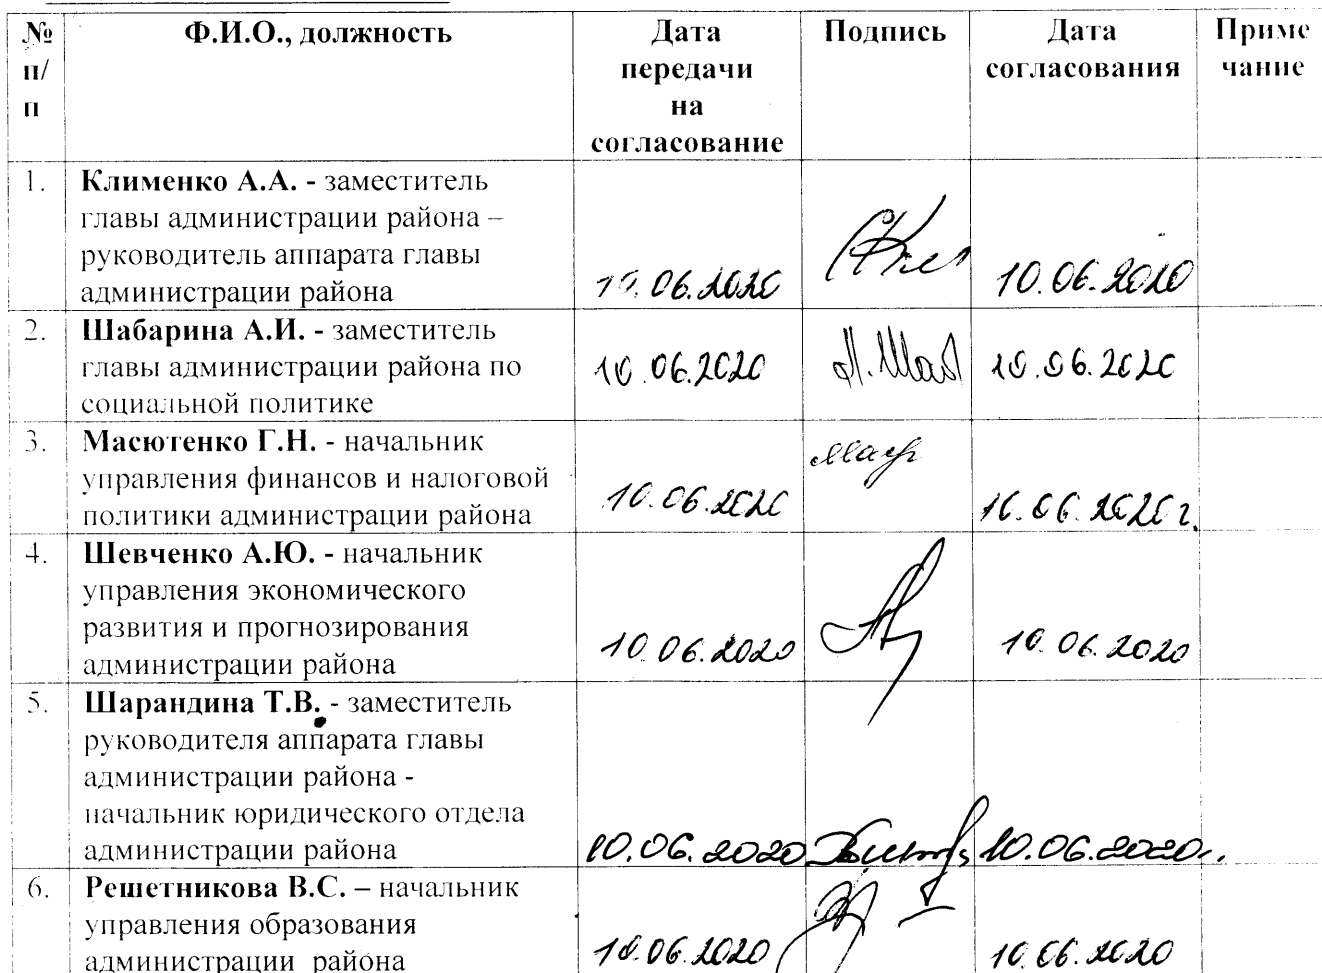 № Ф.И.О., должность Дата Подпись Дата Приме
п/ передачи согласования чание
п на
согласование
1. Клименко А.А. - заместитель
главы администрации района –
руководитель аппарата главы
администрации района 10.06.2020 10.06.2020
2. Шабарина А.И. - заместитель
главы администрации района по 10.06.2020 А. Шаб 10.06.2020
социальной политике
3. Масютенко Г.Н. - начальник
управления финансов и налоговой
политики администрации района 10.06.2020 10.06.2020г.
4. Шевченко А.Ю. - начальник
управления экономического
развития и прогнозирования
администрации района 10.06.2020 10.06.2020
5. Шарандина Т.В. - заместитель
руководителя аппарата главы
администрации района -
начальник юридического отдела
администрации района 10.06.2020 10.06.2020г.
6. Решетникова В.С. – начальник
управления образования
администрации района 10.06.2020 10.06.2020